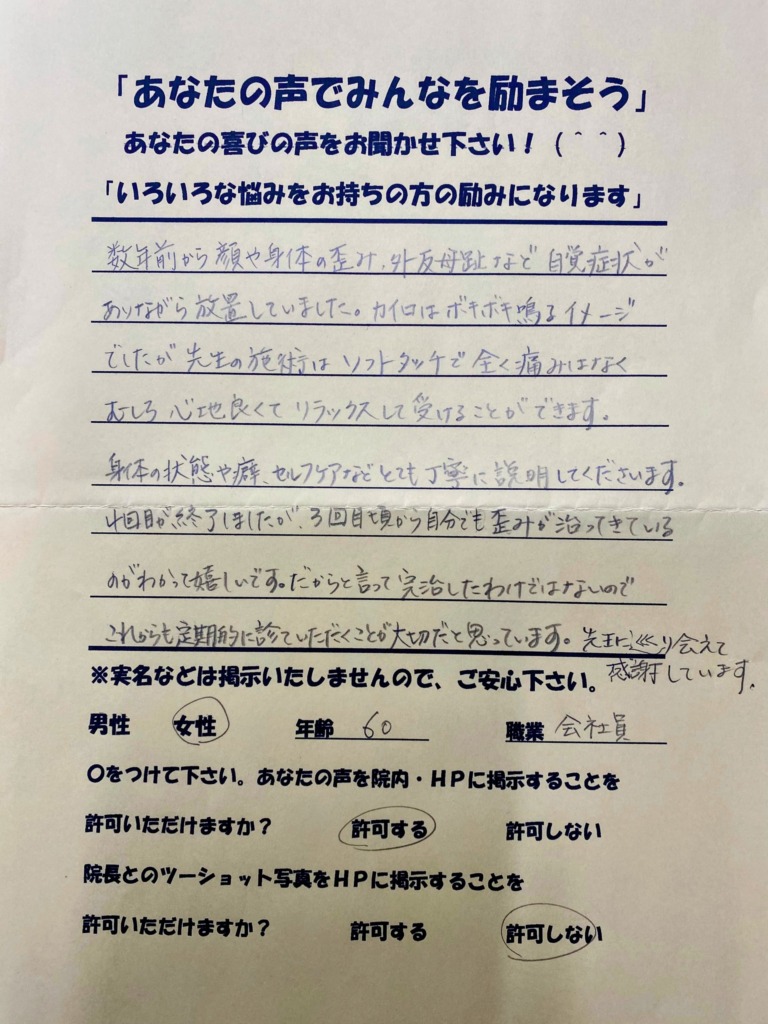 「あなたの声でみんなを励まそう」
あなたの喜びの声をお聞かせ下さい！（＾＾）
「いろいろな悩みをお持ちの方の励みになります」
数年前から顔や身体の歪み、外反母趾など自覚症状が
ありながら放置していました。カイロはボキボキ鳴るイメージ
でしたが先生の施術はソフトタッチで全く痛みはなく
むしろ心地良くてリラックスして受けることができます。
身体の状態や癖、セルフケアなどとても丁寧に説明してくださいます。
4回目が終了しましたが、3回目頃から自分でも歪みが治ってきている
のがわかって嬉しいです。だからと言って完治したわけではないので
これからも定期的に診ていただくことが大切だと思っています。先生に巡り会えて
感謝しています。
※実名などは掲示いたしませんので、ご安心下さい。
男性 女性 年齢 60 職業 会社員
○をつけて下さい。あなたの声を院内・ＨＰに掲示することを
許可いただけますか？ 許可する 許可しない
院長とのツーショット写真をＨＰに掲示することを
許可いただけますか？ 許可する 許可しない